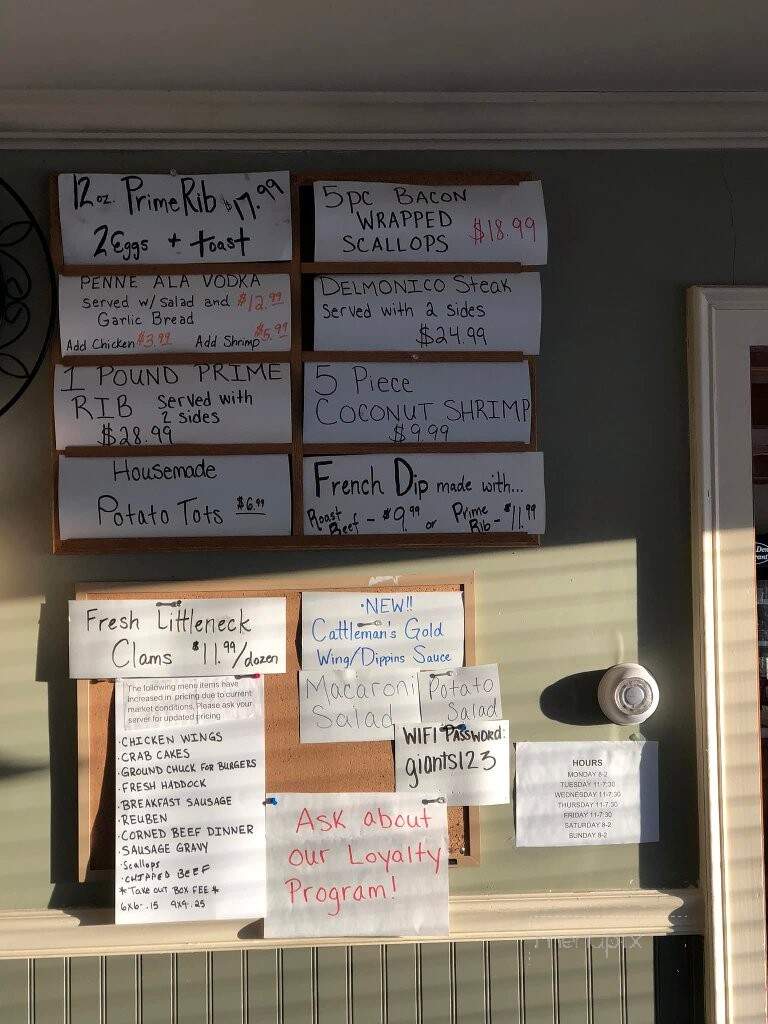 12 oz. Prime Rib $17.99
2 Eggs + toast
5pc BACON
WRAPPED
SCALLOPS $18.99
PENNE ALA VODKA
Served w/ Salad and $12.99
Garlic Bread
Add Chicken $3.99 Add Shrimp $5.99
DELMONICO Steak
Served with 2 sides
$24.99
1 POUND PRIME
RIB Served with
2 sides
$28.99
5 Piece
COCONUT SHRIMP
$9.99
Housemade
Potato Tots $6.99
French Dip made with...
Roast Beef - $9.99 or Prime Rib - $11.99
Fresh Littleneck
Clams $11.99/dozen
·NEW!!
Cattleman's Gold
Wing/Dippins Sauce
Macaroni
Salad
Potato
Salad
WIFI PASSWORD:
giants123
The following menu items have
increased in pricing due to current
market conditions. Please ask your
server for updated pricing
·CHICKEN WINGS
·CRAB CAKES
·GROUND CHUCK FOR BURGERS
·FRESH HADDOCK
·BREAKFAST SAUSAGE
·REUBEN
·CORNED BEEF DINNER
·SAUSAGE GRAVY
·Scallops
·CHIPPED BEEF
*TAKE OUT BOX FEE*
6x6-.15 9x9-.25
Ask about
our Loyalty
Program!
HOURS
MONDAY 8-2
TUESDAY 11-7:30
WEDNESDAY 11-7:30
THURSDAY 11-7:30
FRIDAY 11-7:30
SATURDAY 8-2
SUNDAY 8-2
menupix